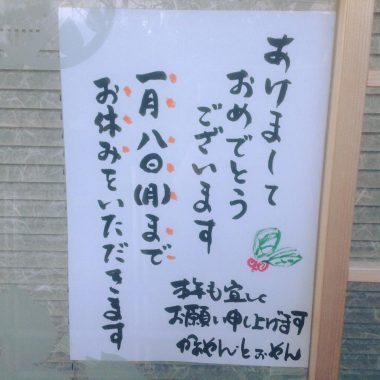 あけまして
おめでとう
ございます
一月八日(月)まで
お休みをいただきます
本年も宜しく
お願い申し上げます